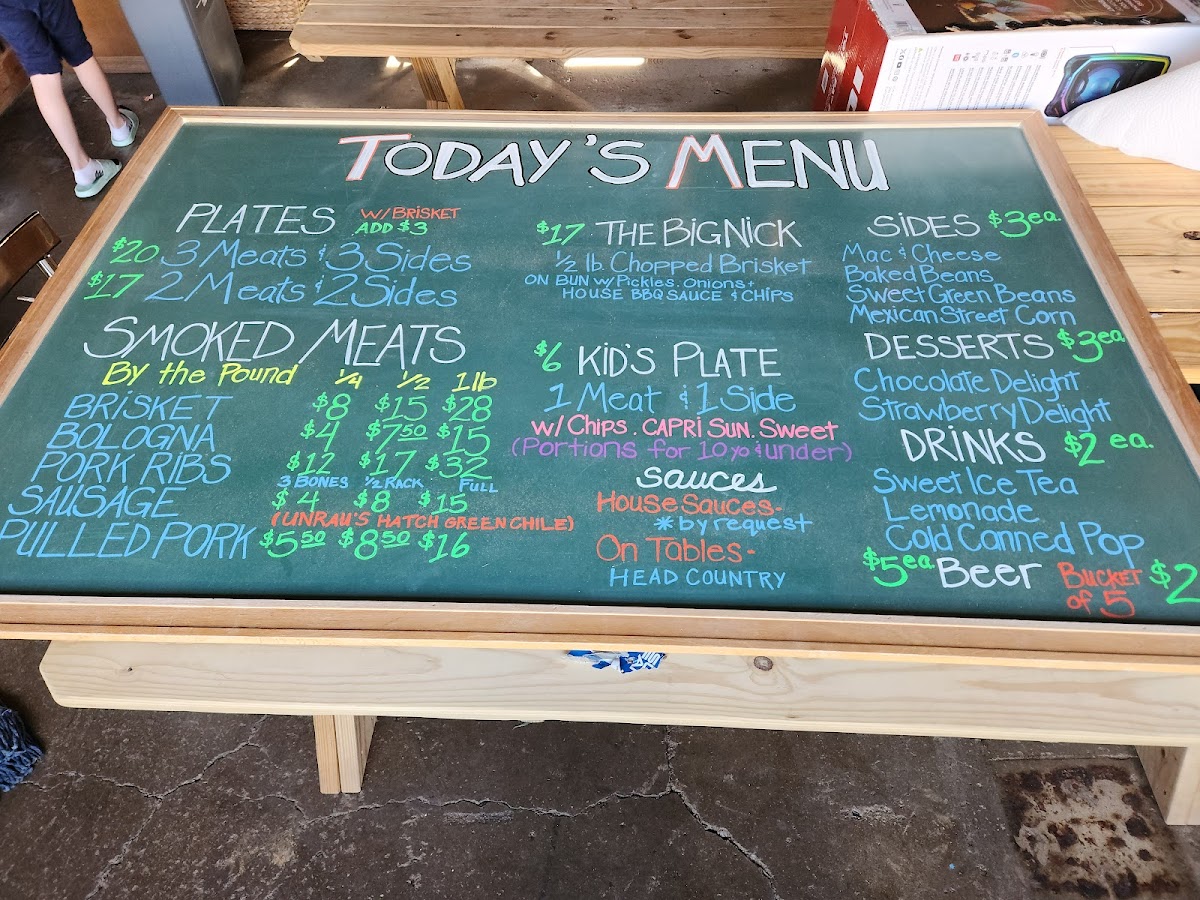 TODAY'S MENU
PLATES W/BRISKET ADD $3
$20 3 Meats & 3 Sides
$17 2 Meats & 2 Sides
SMOKED MEATS
By the Pound 1/4 1/2 1lb
BRISKET $8 $15 $28
BOLOGNA $4 $7.50 $15
PORK RIBS $12 $17 $32
3 BONES 1/2 RACK FULL
SAUSAGE $4 $8 $15
(UNRAU'S HATCH GREEN CHILE)
PULLED PORK $5.50 $8.50 $16
$17 THE BIG NICK
1/2 lb. Chopped Brisket
ON BUN w/ Pickles. Onions +
HOUSE BBQ SAUCE & CHIPS
$6 KID'S PLATE
1 Meat & 1 Side
w/ Chips. CAPRI SUN. Sweet
(Portions for 10yo & under)
sauces
House Sauces-
*by request
On Tables-
HEAD COUNTRY
SIDES $3 ea.
Mac & Cheese
Baked Beans
Sweet Green Beans
Mexican Street Corn
DESSERTS $3 ea
Chocolate Delight
Strawberry Delight
DRINKS $2 ea.
Sweet Ice Tea
Lemonade
Cold Canned Pop
$5 ea. Beer BUCKET of 5 $2